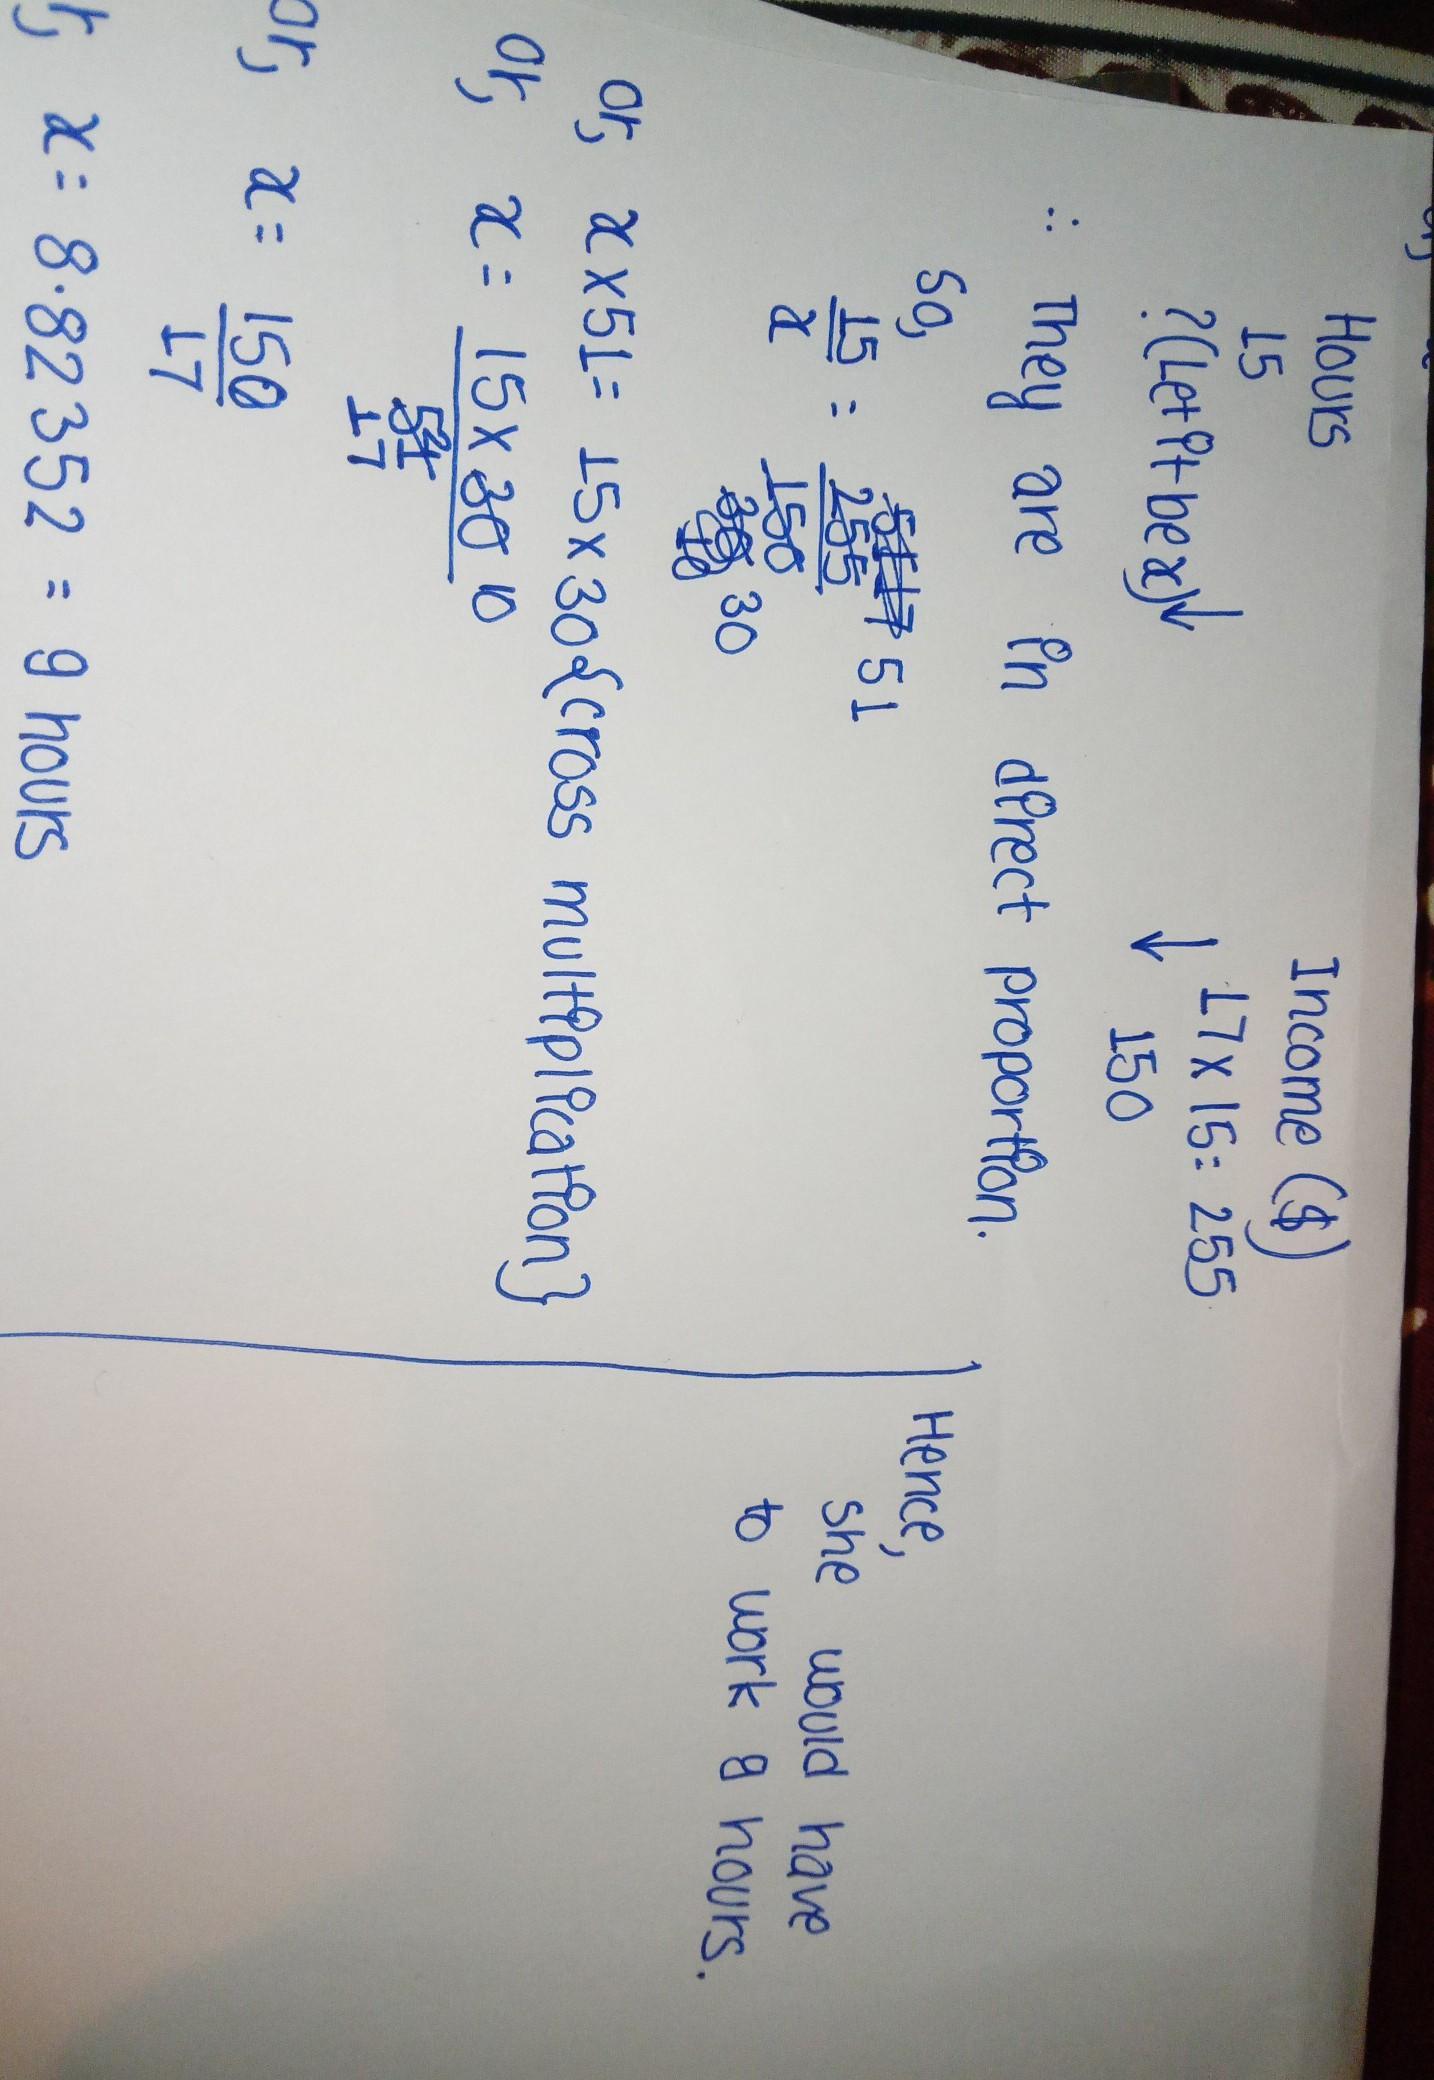 Hours Income ($)
15 17x15= 255
?(Let it be x)↓ ↓ 150
∴ They are in direct proportion.
So,
15/x = 255/150 51 30
or, x x 51= 15x30 {cross multiplication}
or, x = 15x30 10
51
17
or, x = 150/17
x = 8.82352 = 9 hours
Hence,
she would have
to work 9 hours.